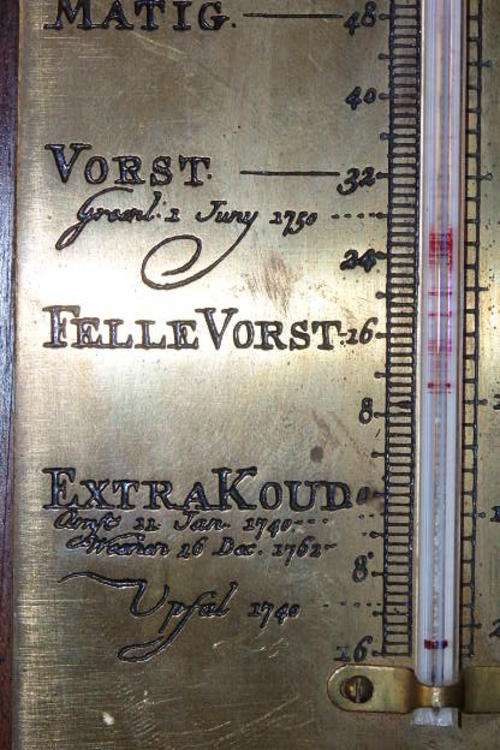 MATIG. 48
40
VORST 32
Groenl. 1 Juny 1750
24
FELLE VORST 16
8
EXTRA KOUD 0
Amst 11 Jan. 1740
16 Dec. 1762
8
Upsal 1740
16